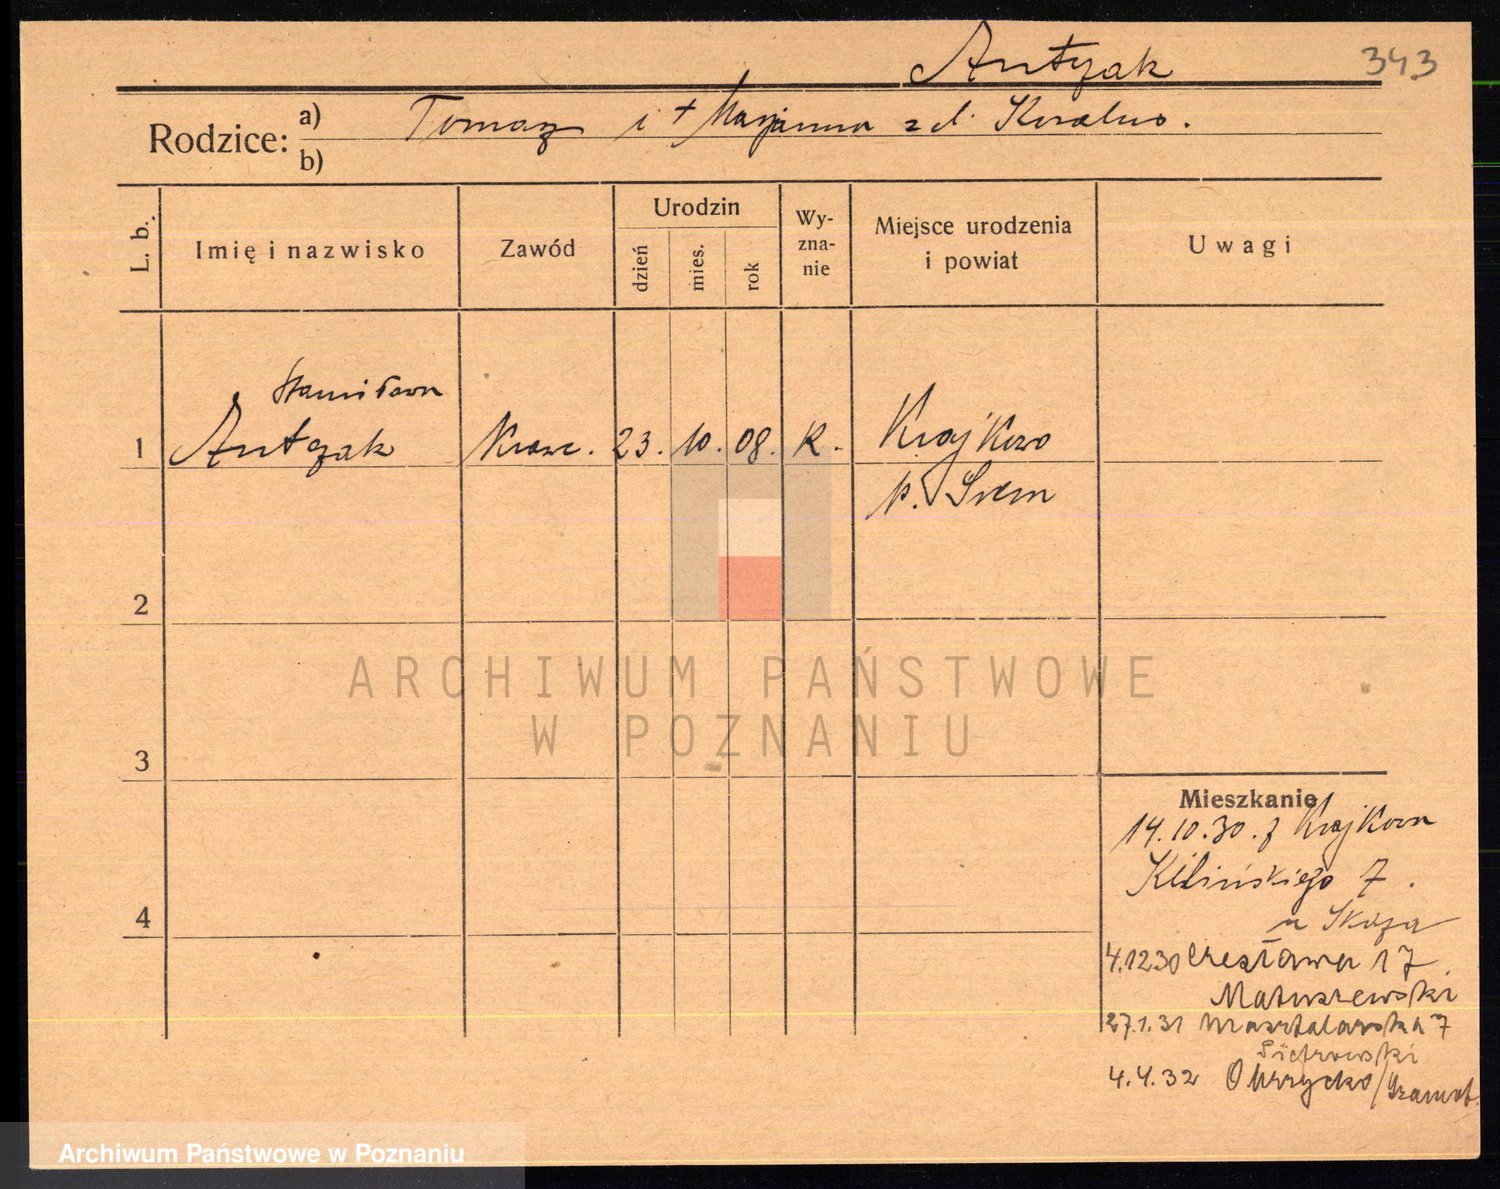 Antczak 343
Rodzice: a) Tomasz i + Marjanna z d.
b)
L. b. Imię i nazwisko Zawód Urodzin dzień mies. rok Wy-zna-nie Miejsce urodzenia i powiat Uwagi
Stanisława
1 Antczak Krawc. 23. 10. 08. K. Krajkowo
p. Śrem
2
ARCHIWUM PAŃSTWOWE
W POZNANIU
3
Mieszkanie
14.10.30. z Krajkowa
Kilińskiego 7.
u
4
4.12.30 Czesława 17.
Matuszewski
27.1.31 Masztalarska 7
Piotrowski
4.4.32 Obrzycko/Szamot.
Archiwum Państwowe w Poznaniu